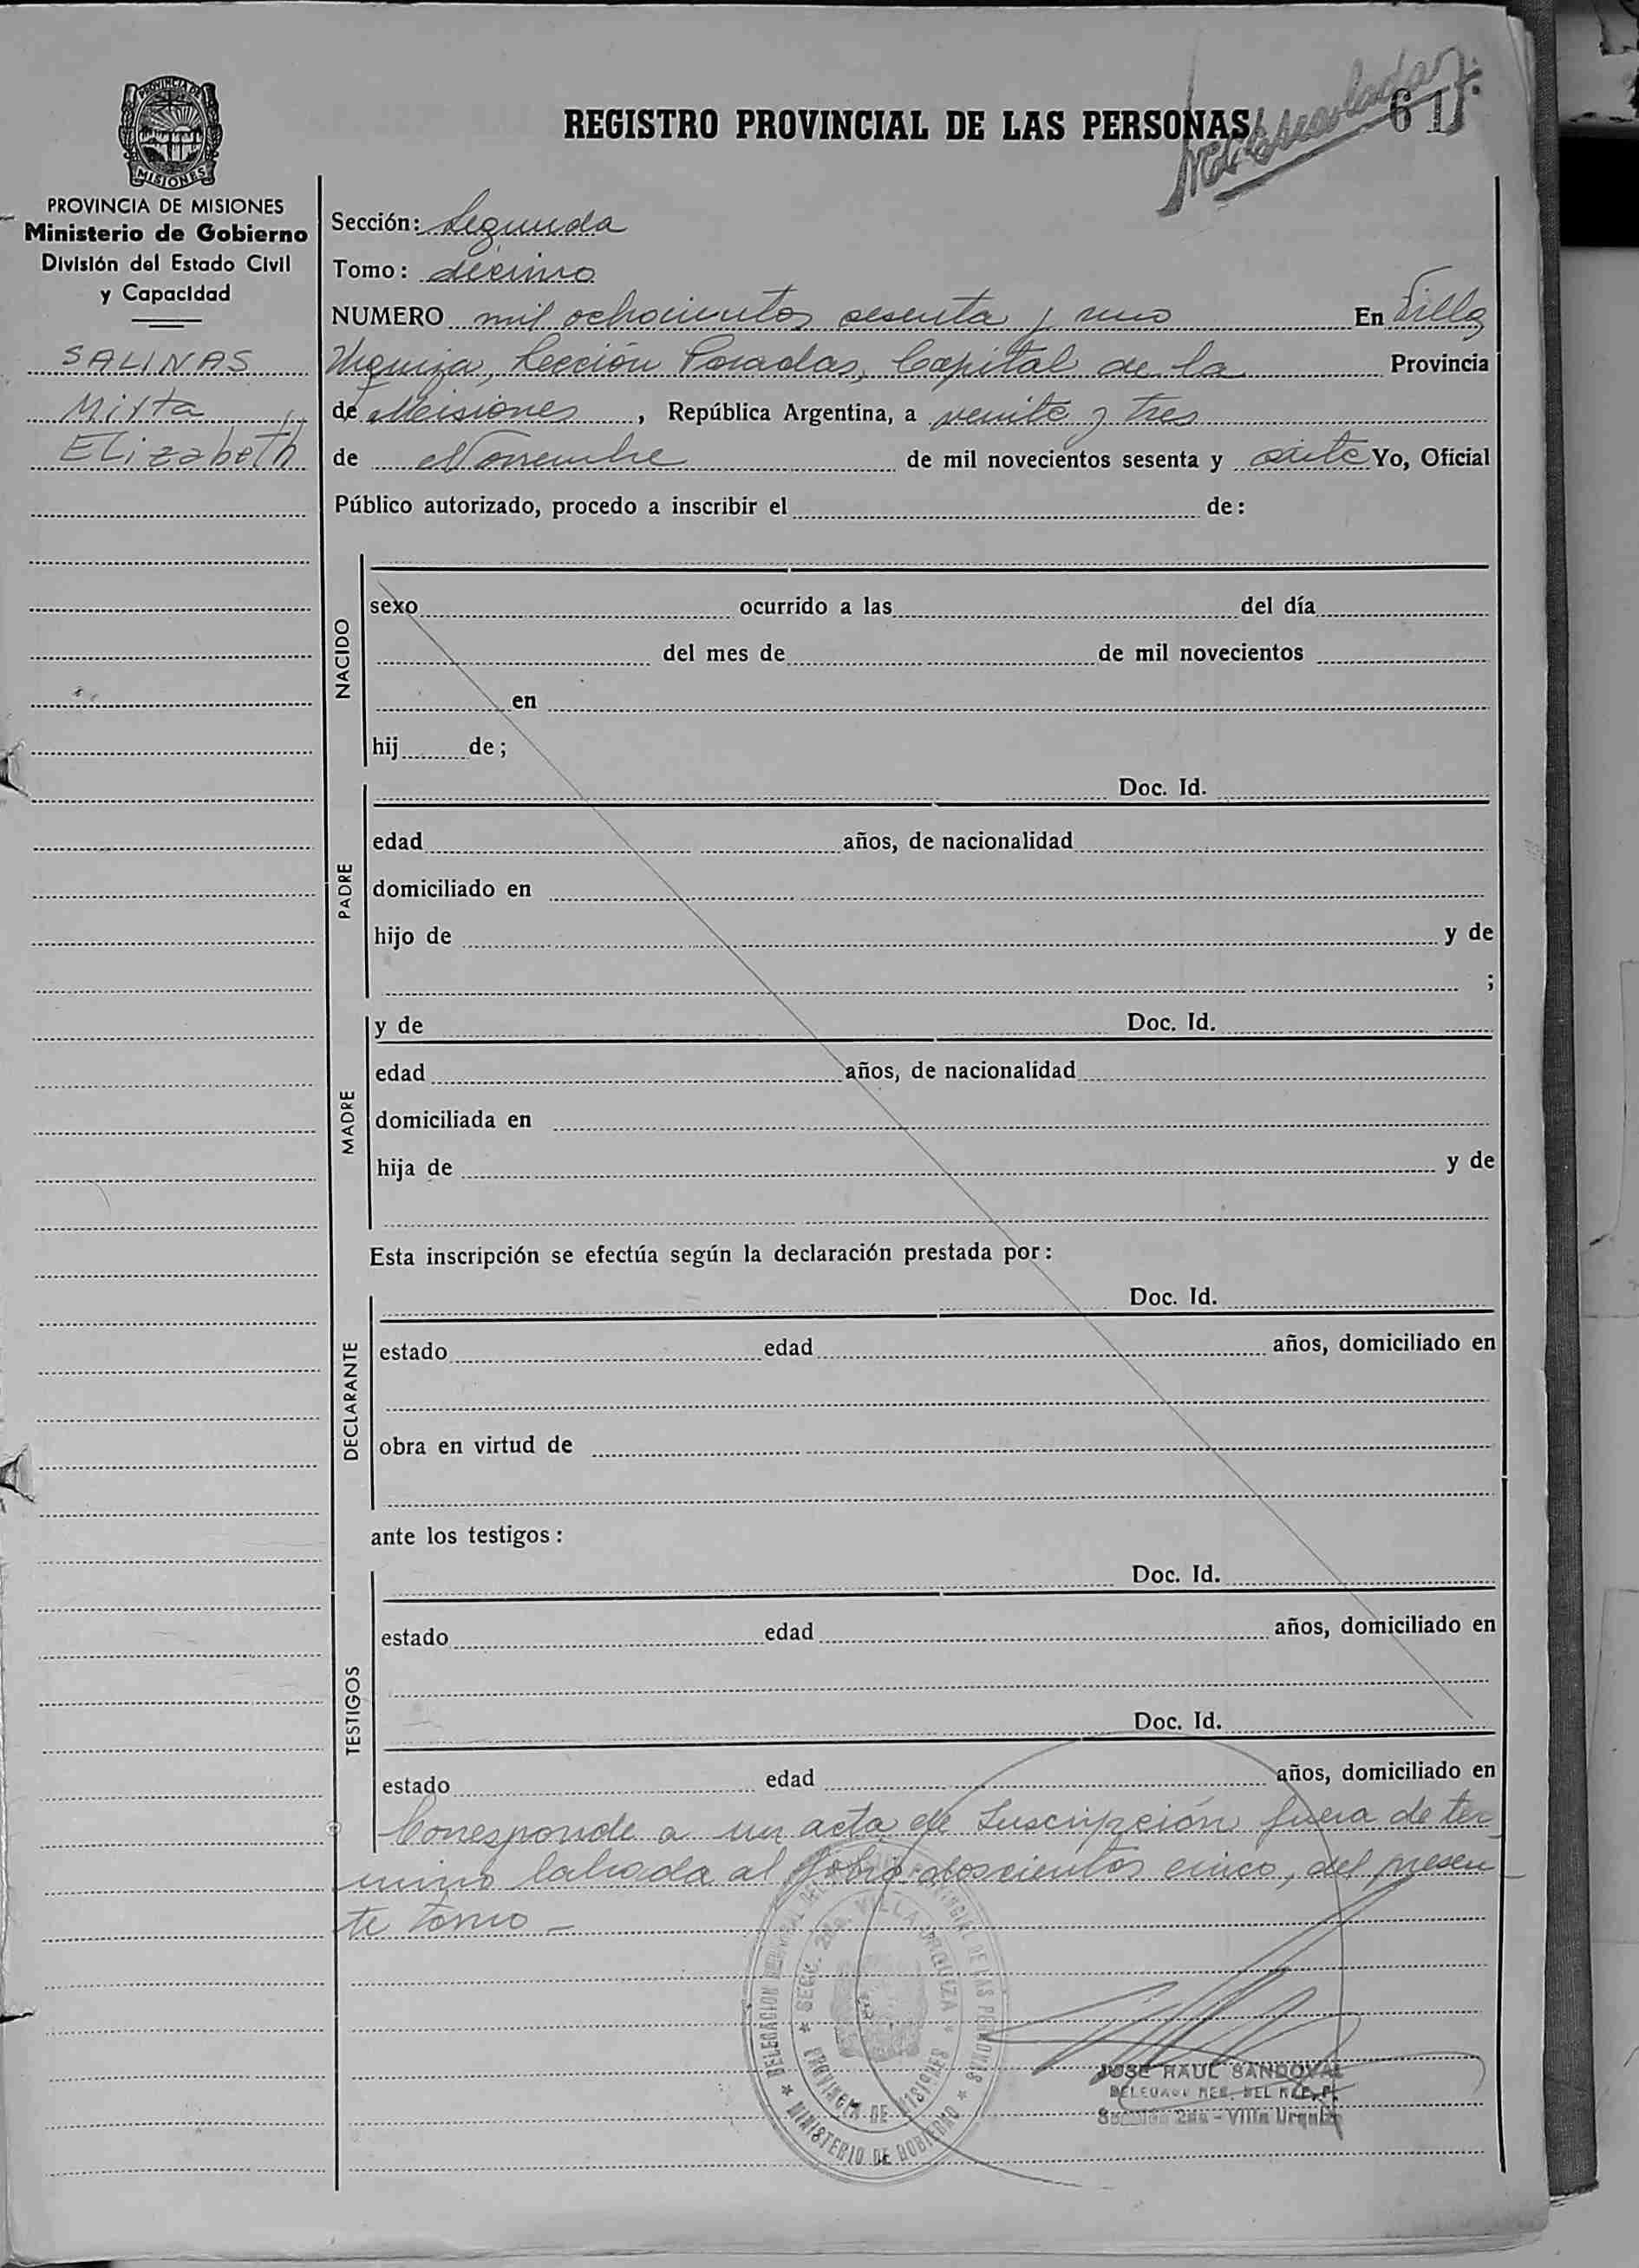 REGISTRO PROVINCIAL DE LAS PERSONAS
61
PROVINCIA DE
MISIONES
PROVINCIA DE MISIONES
Ministerio de Gobierno
División del Estado Civil
y Capacidad
SALINAS
Mirta
Elizabeth
Sección: Segunda
Tomo: décimo
NUMERO mil ochocientos sesenta y uno En Villa
Urquiza, Sección Posadas, Capital de la Provincia
de Misiones, República Argentina, a veinte y tres
de Noviembre de mil novecientos sesenta y siete Yo, Oficial
Público autorizado, procedo a inscribir el de:
NACIDO
sexo ocurrido a las del día
del mes de de mil novecientos
en
hij de;
PADRE
Doc. Id.
edad años, de nacionalidad
domiciliado en
hijo de y de
;
MADRE
y de Doc. Id.
edad años, de nacionalidad
domiciliada en
hija de y de
Esta inscripción se efectúa según la declaración prestada por:
DECLARANTE
Doc. Id.
estado edad años, domiciliado en
obra en virtud de
ante los testigos:
TESTIGOS
Doc. Id.
estado edad años, domiciliado en
Doc. Id.
estado edad años, domiciliado en
Corresponde a un acta de Inscripción fuera de tér
mino labrada al folio doscientos cinco, del presen
te tomo -
SECC. 2da. VILLA URQUIZA
PROVINCIA DE MISIONES
MINISTERIO DE GOBIERNO
JOSE RAUL SANDOVAL
Sección 2da - Villa Urquiza